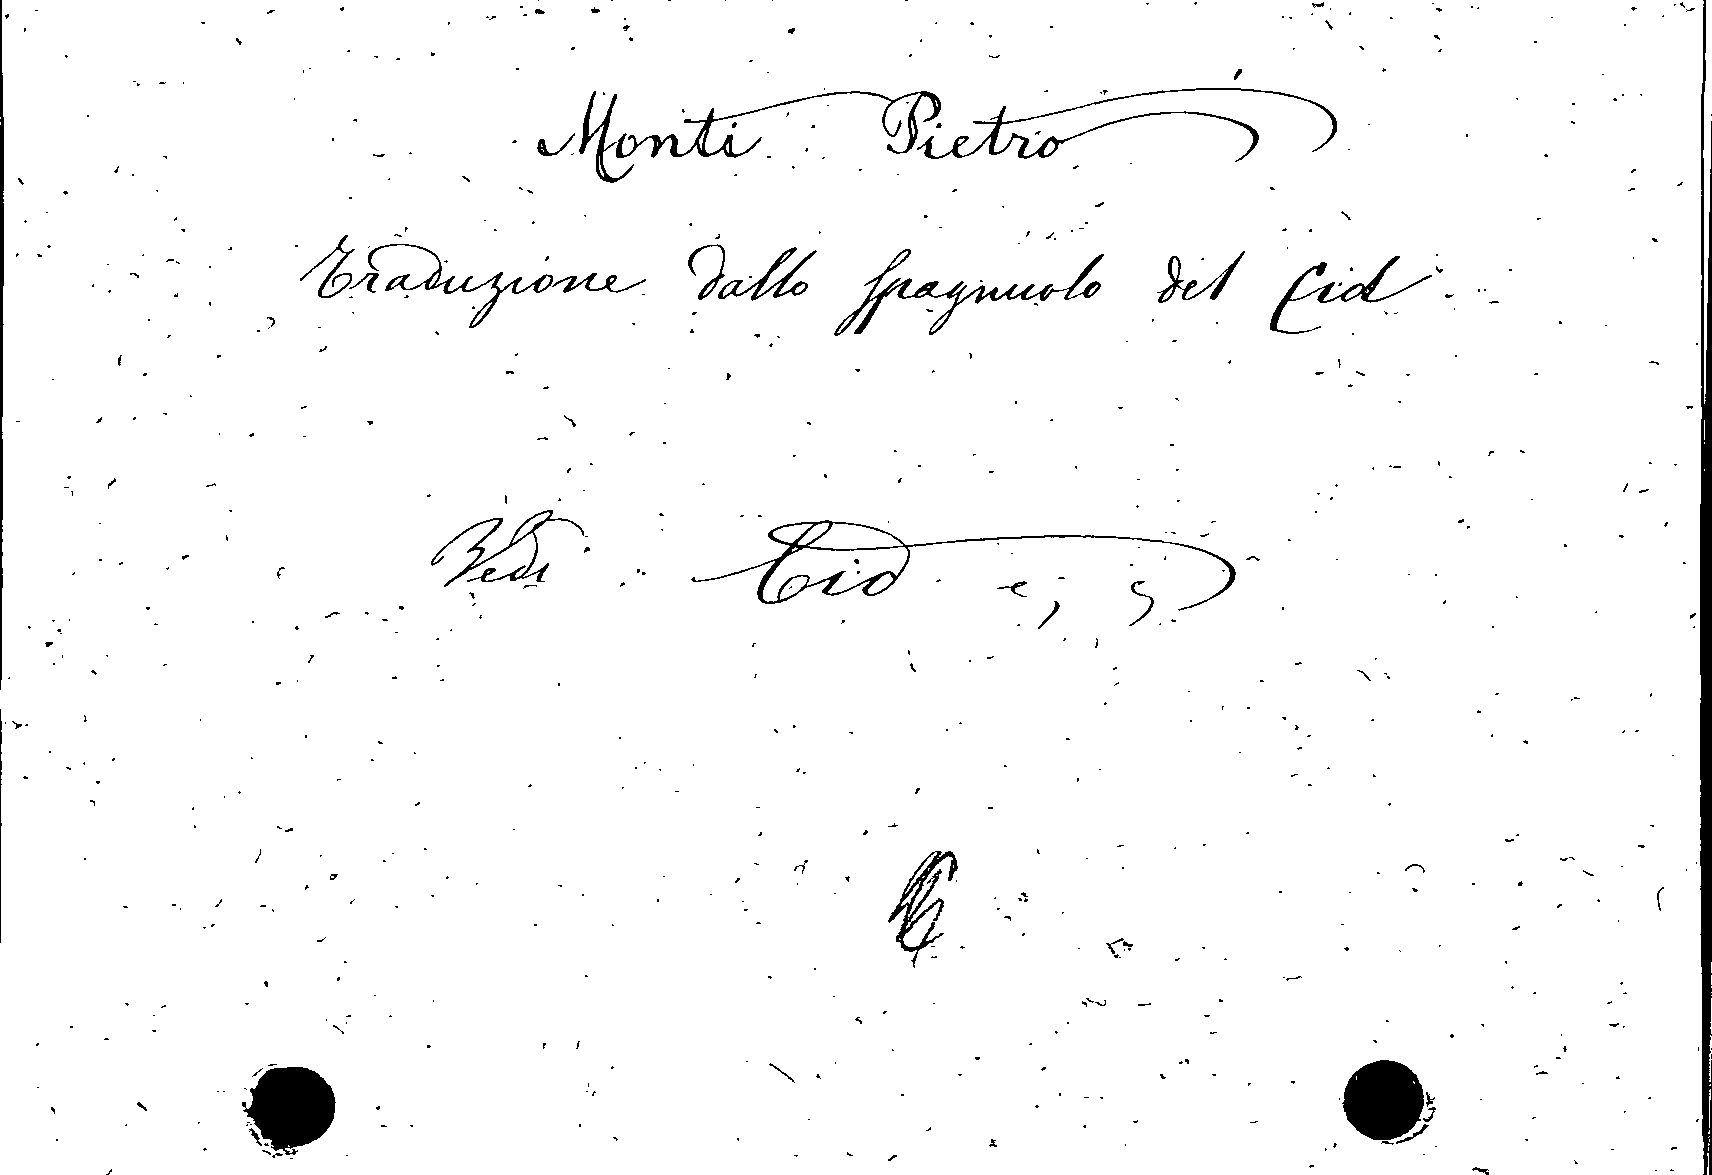 Monti Pietro
Traduzione dallo spagnuolo del Cid
Vedi Cid